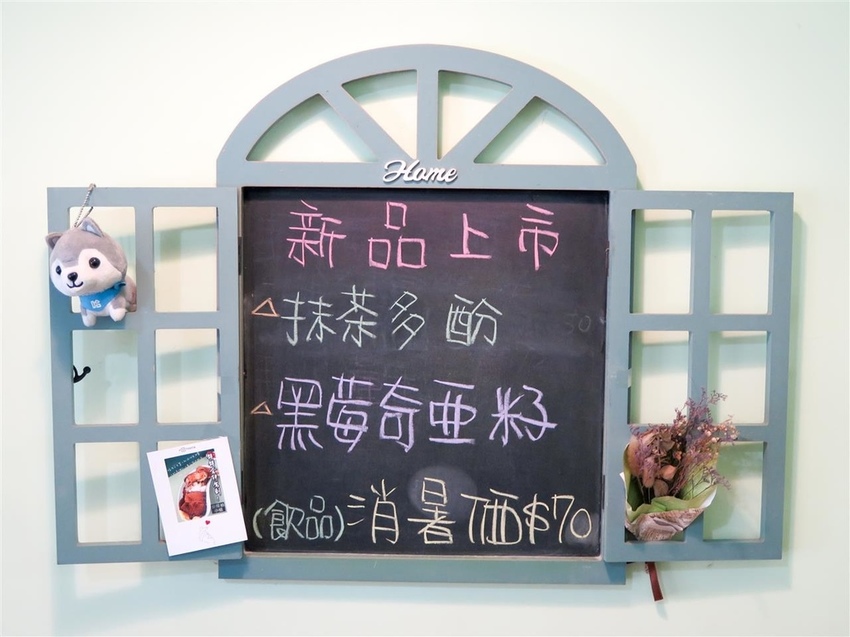 Home
新品上市
△抹茶多酚
△黑莓奇亜籽
(飲品)消暑価$70